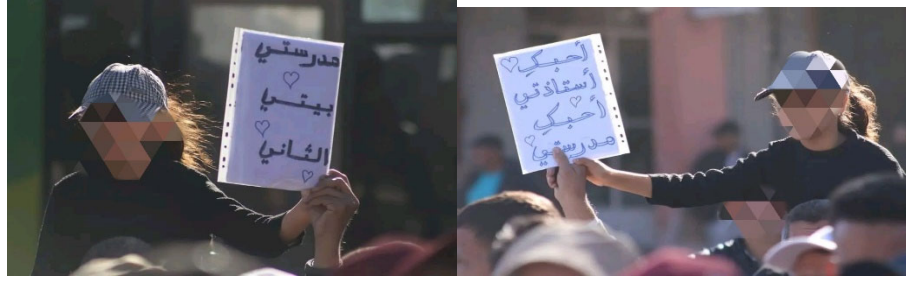 مدرستي
بيتي
الثاني
أحبكِ
أستاذتي
أحبكِ
مدرستي